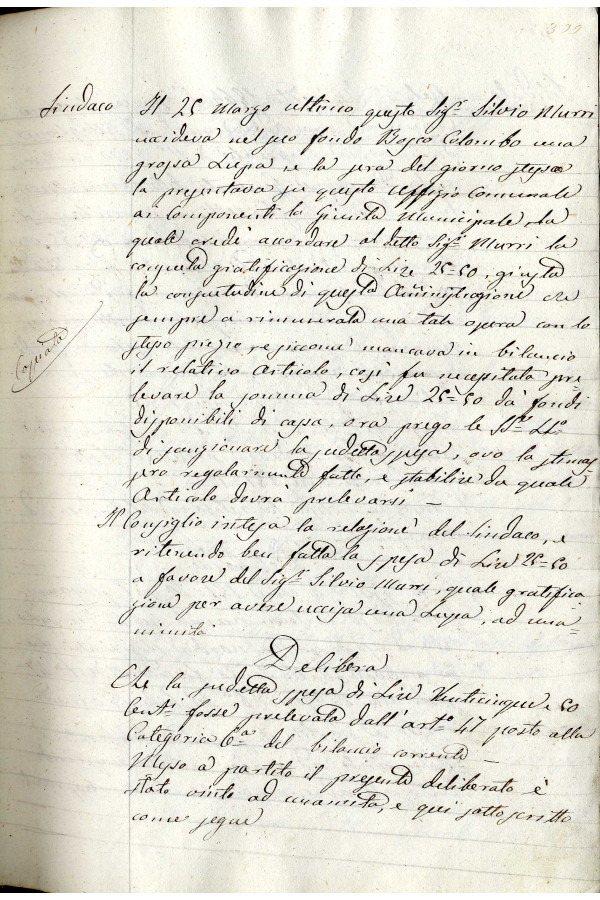 399
Sindaco Il 25 Marzo ultimo questo Sig.r Silvio Murri
uccideva nel suo fondo Bosco Colombo una
grossa Lupa, e la sera del giorno stesso
la presentava in questo Uffizio Comunale
ai componenti la Giunta Municipale, la
quale credè accordare al detto Sig.r Murri la
consueta gratificazione di Lire 25=50, giusta
la consuetudine di questa Amministrazione che
sempre a rimunerata una tale opera con lo
stesso prezzo, e siccome mancava in bilancio
il relativo Articolo, così fu necessitata pre=
levare la somma di Lire 25=50 da' fondi
disponibili di cassa, ora prego le SS.rie LL.e
di sanzionare la sudetta spesa, ove la stimas
sero regolarmente fatta, e stabilire da quale
Articolo dovrà prelevarsi —
Copiata
Il Consiglio intesa la relazione del Sindaco, e
ritenendo ben fatta la spesa di Lire 25=50
a favore del Sig.r Silvio Murri, quale gratifica
zione per avere uccisa una Lupa, ad una=
nimità
Delibera
Che la sudetta spesa di Lire Venticinque e 50
Cent.i fosse prelevata dall'art.o 47 posto alla
Categoria 6.a del bilancio corrente —
Messo a partito il presente deliberato è
stato vinto ad unanimita, e qui sottoscritto
come segue